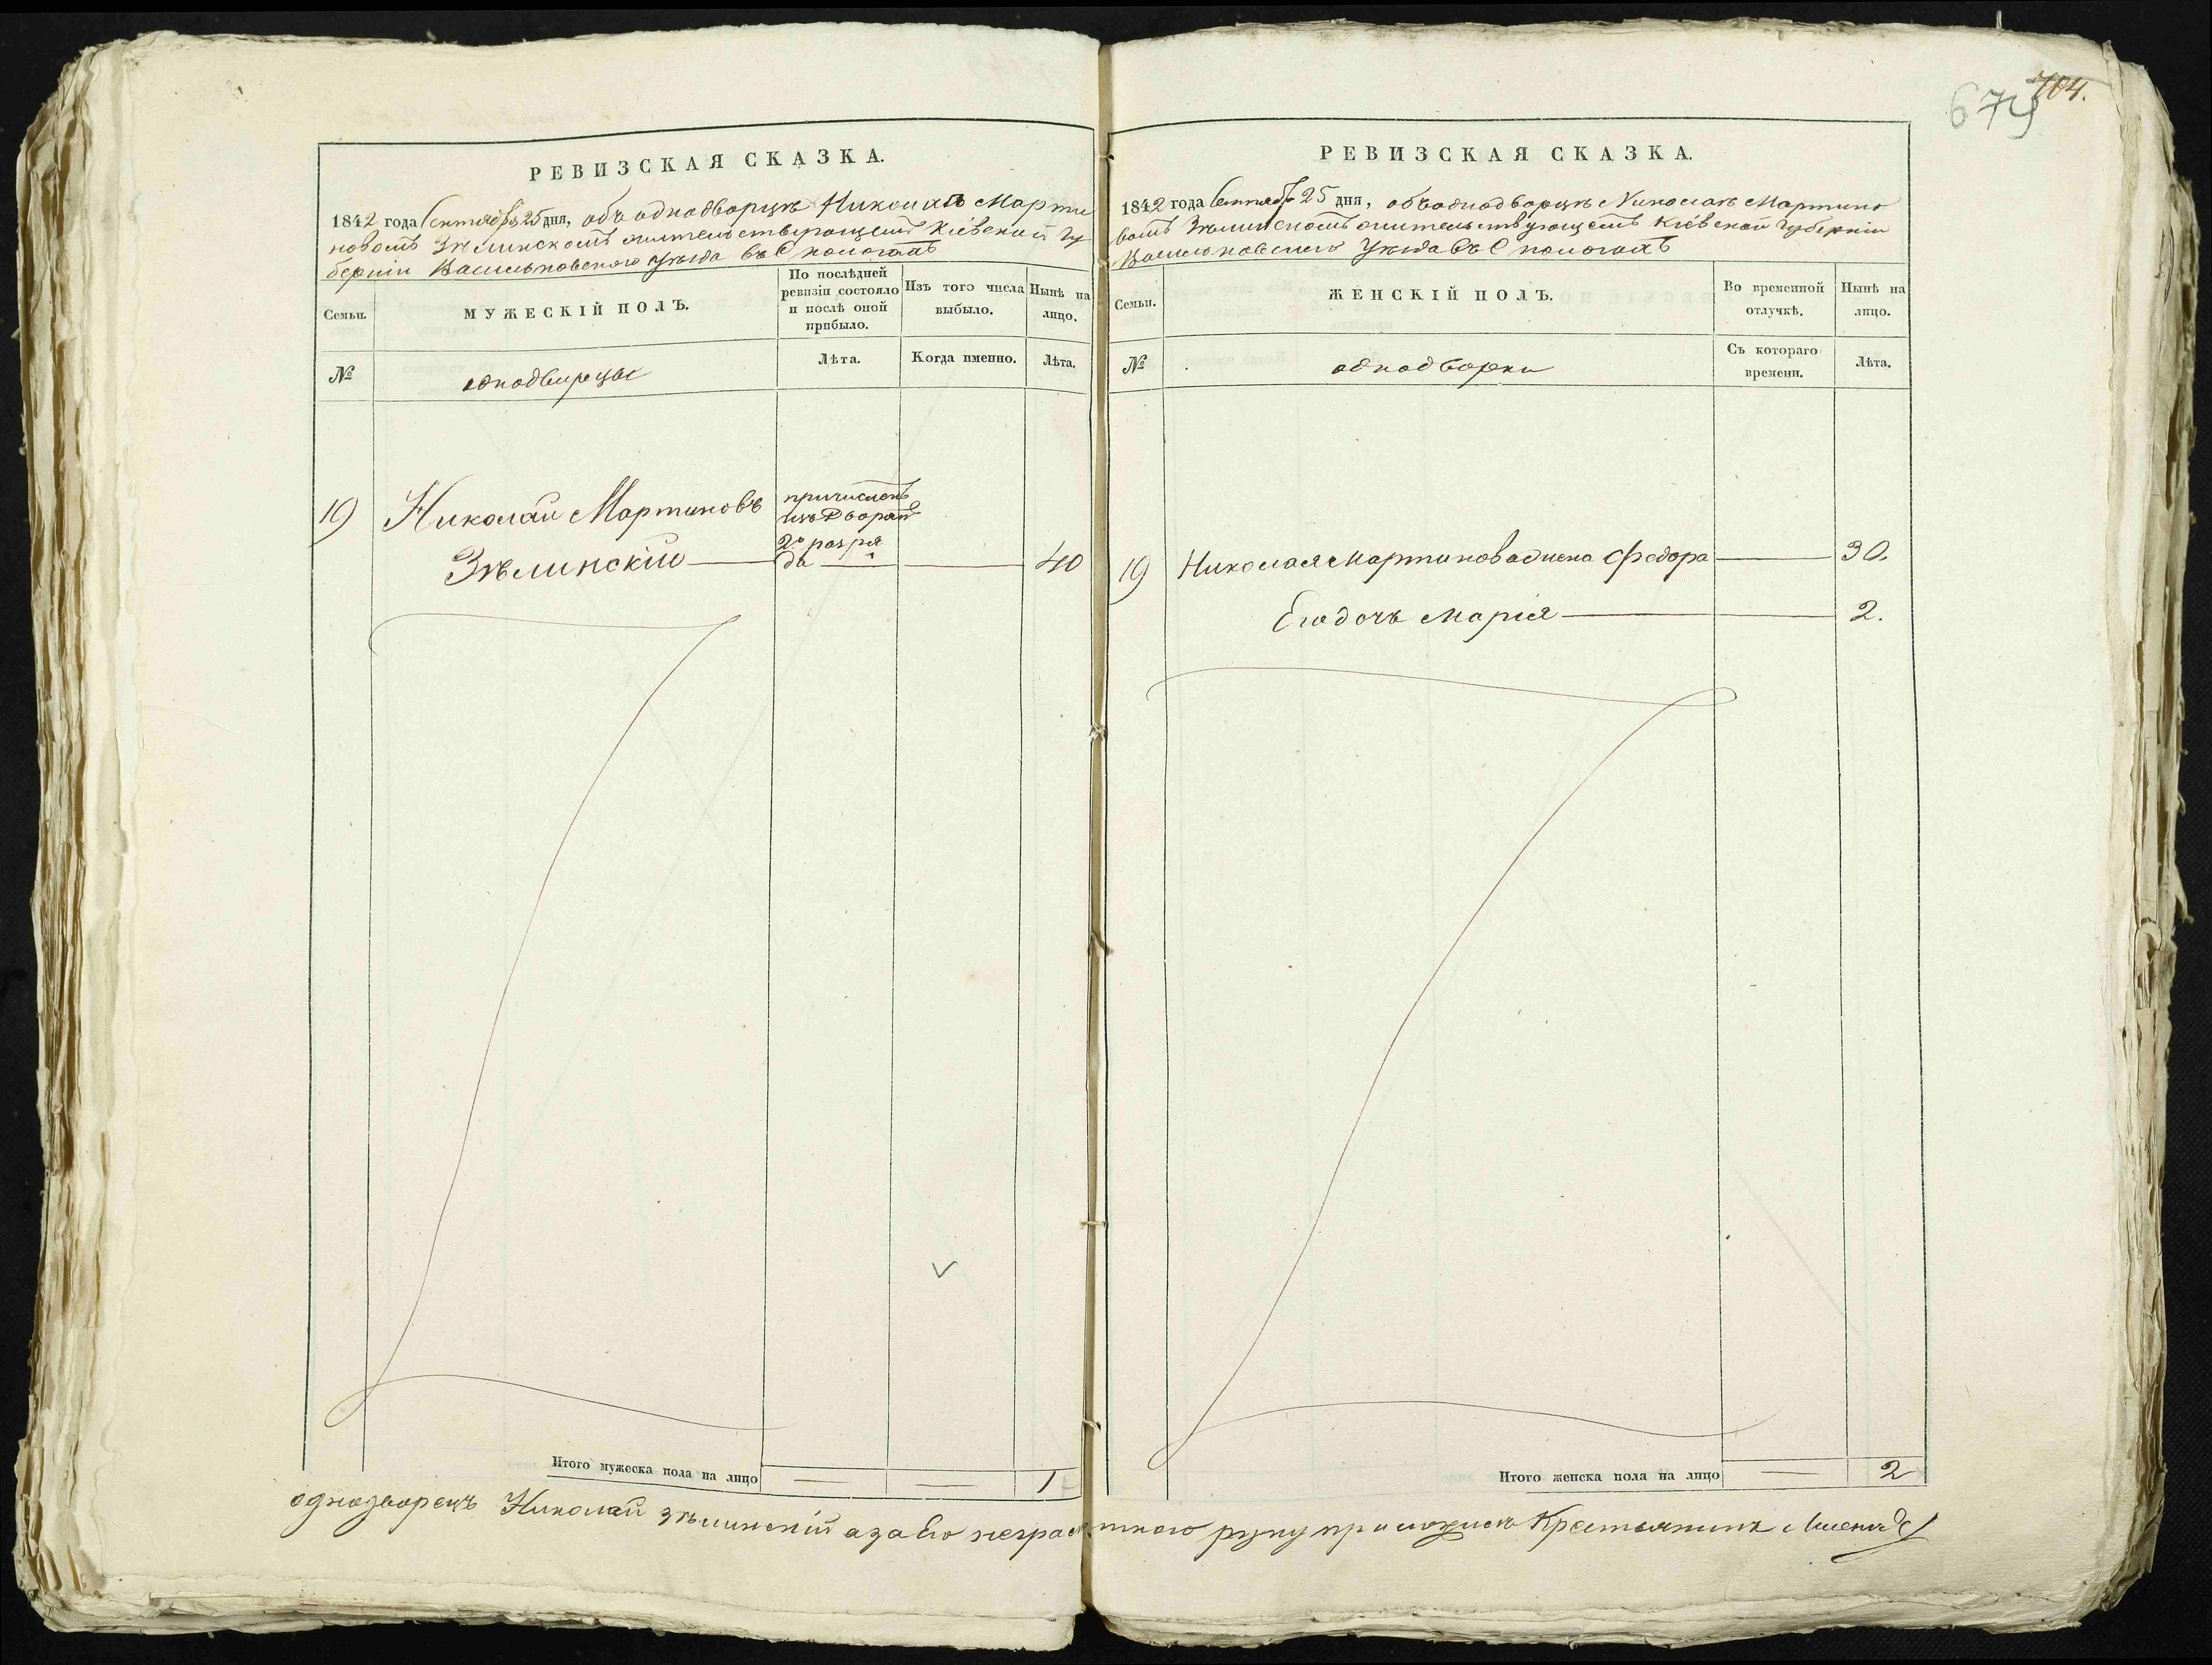 704.
679
РЕВИЗСКАЯ СКАЗКА.
1842 года Сентября 25 дня, объ однодворцѣ Николаѣ Марти
новомъ Зѣлинскомъ жительствующемъ Кіевской Гу
берніи Васильковскаго Уѣзда въ С
Семьи.
МУЖЕСКІЙ ПОЛЪ.
По послѣдней
ревизіи состояло
и послѣ оной
прибыло.
Изъ того числа
выбыло.
Нынѣ на
лицо.
№
однодворцы
Лѣта.
Когда именно.
Лѣта.
19
Николай Мартиновъ
Зѣлинскій
причисленъ
изъ Дворянъ
2го разря
да
40
Итого мужеска пола на лицо
1
РЕВИЗСКАЯ СКАЗКА.
1842 года Сентября 25 дня, объ однодворцѣ Николаѣ Мартино
вомъ Зѣлинскомъ жительствующемъ Кіевской Губерніи
Васильковскаго Уѣзда въ С
Семьи.
ЖЕНСКІЙ ПОЛЪ.
Во временной
отлучкѣ.
Нынѣ на
лицо.
№
однодворки
Съ котораго
времени.
Лѣта.
19
Николая Мартинова жена Федора
30.
Его дочь Марія
2.
Итого женска пола на лицо
2
однодворецъ Николай Зѣлинскій а за его неграмотнаго руку приложилъ Крестьянинъ